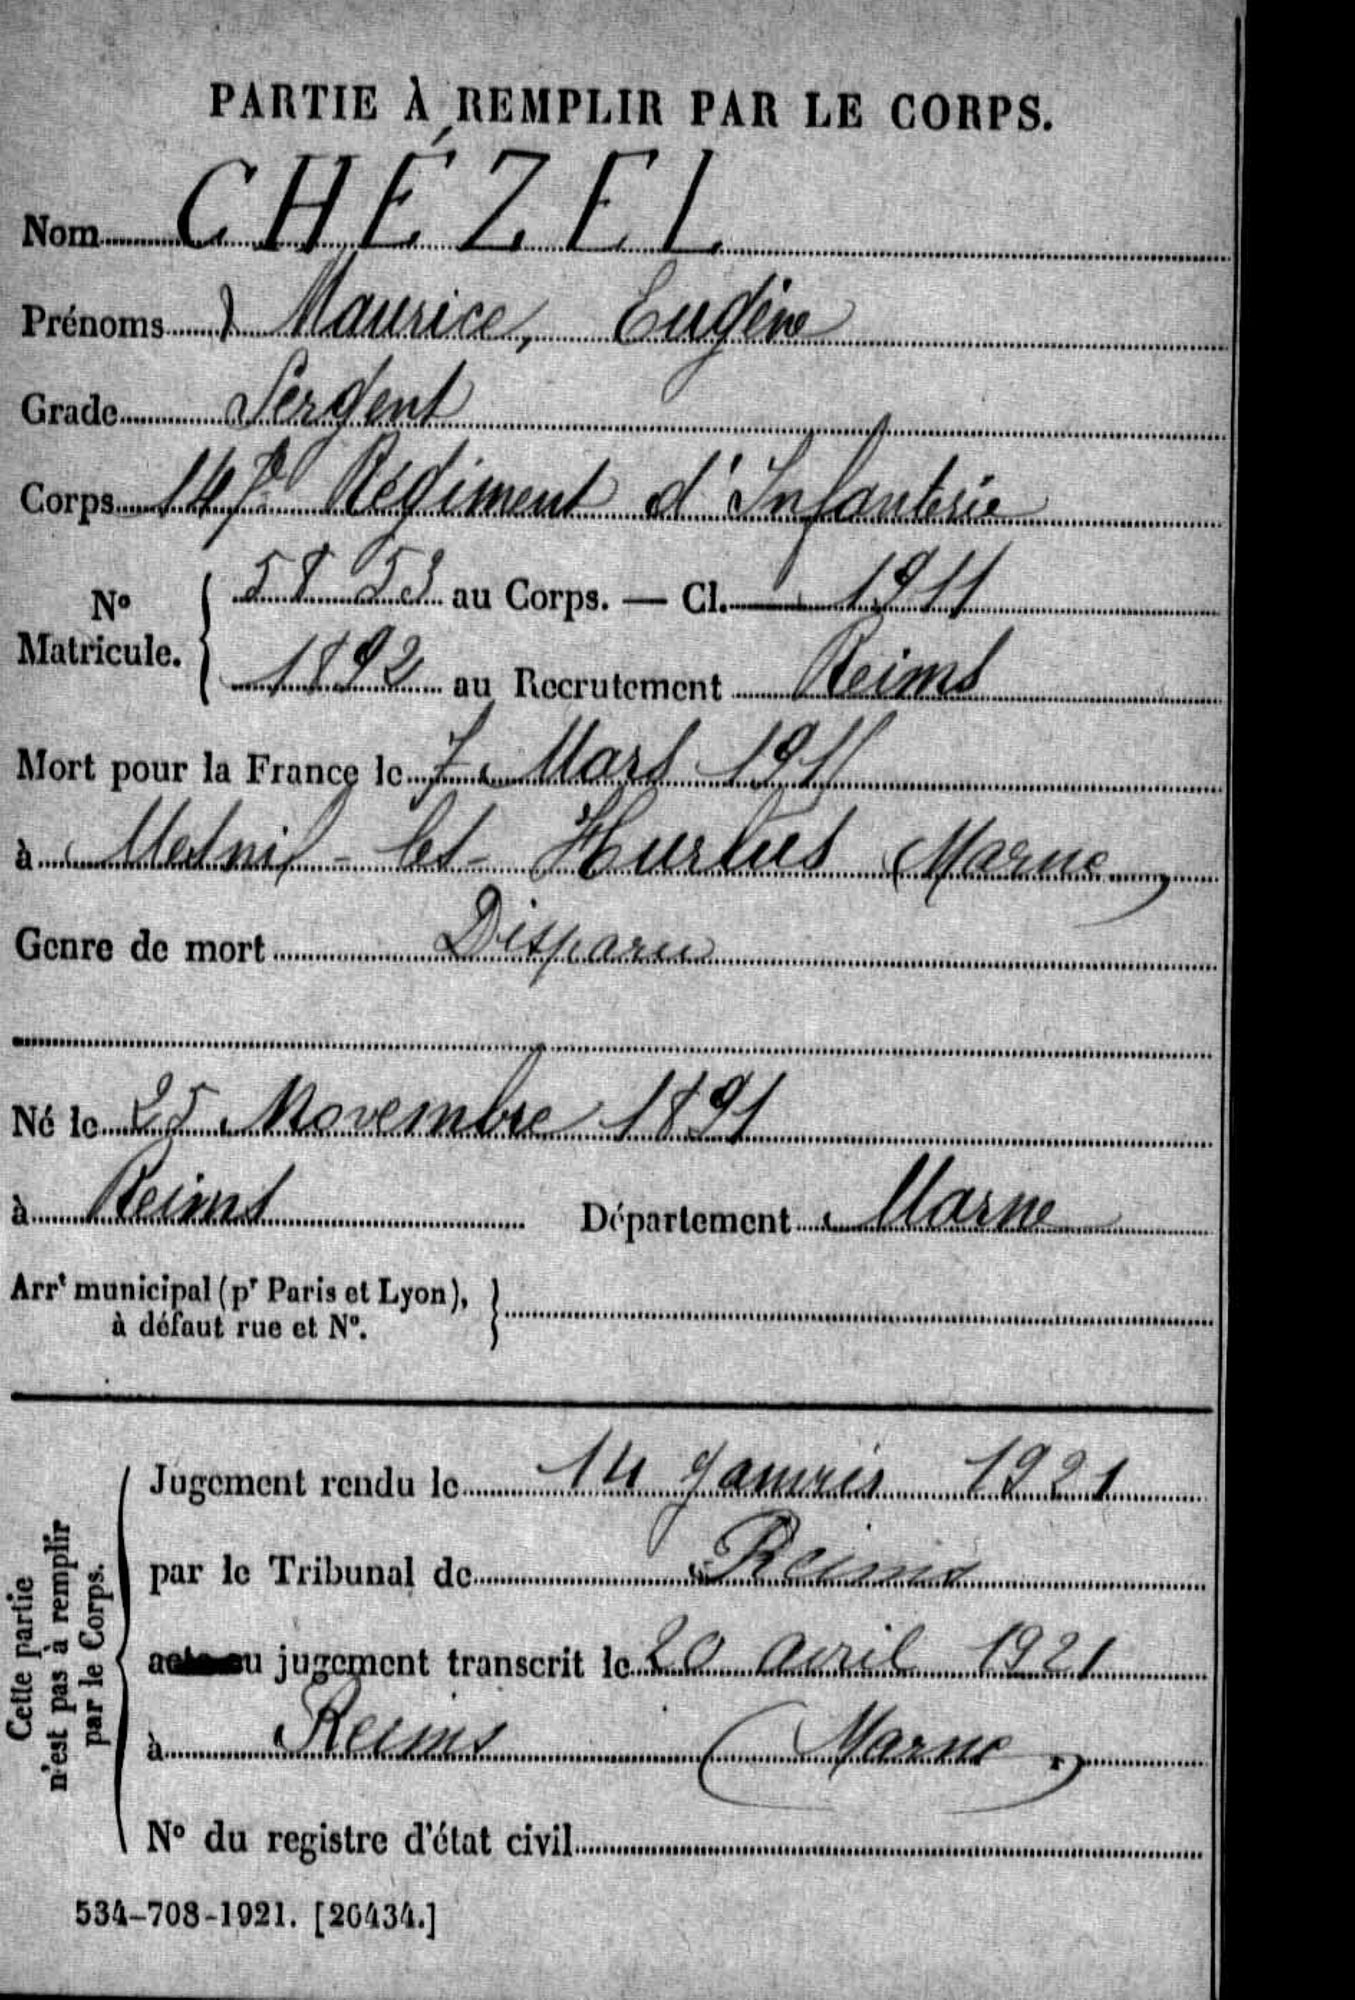 PARTIE À REMPLIR PAR LE CORPS.
Nom CHÉZEL
Prénoms Maurice, Eugène
Grade Sergent
Corps 147e Régiment d'Infanterie
N° Matricule. { 58 53 au Corps. — Cl. 1911
1892 au Recrutement Reims
Mort pour la France le 7 Mars
à Mesnil-les-Hurlus (Marne)
Genre de mort Disparu
Né le 25 Novembre 1891
à Reims Département Marne
Arrt municipal (pr Paris et Lyon),
à défaut rue et N°.
Cette partie
n'est pas à remplir
par le Corps.
Jugement rendu le 14 Janvier 1921
par le Tribunal de Reims
acte ou jugement transcrit le 20 avril 1921
à Reims (Marne)
N° du registre d'état civil
534-708-1921. [26434.]